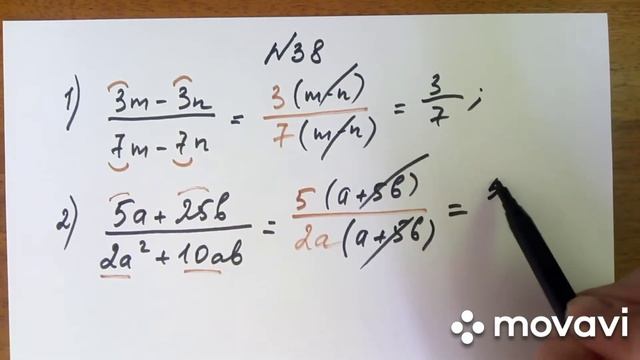 N38
1) (3m - 3n)/(7m - 7n) = 3(m-n)/7(m-n) = 3/7;
2) (5a + 25b)/(2a² + 10ab) = 5(a+5b)/2a(a+5b) =
movavi